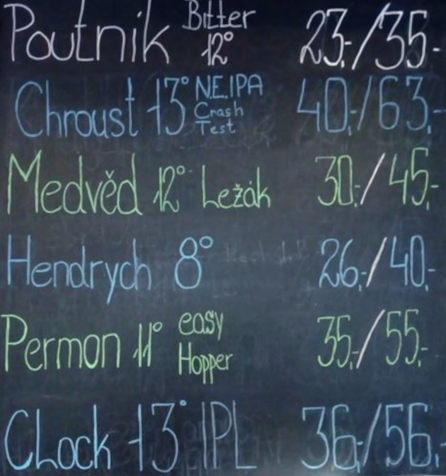 Poutnik Bitter 12° 23,-/35,-
Chroust 13° N.E.IPA Crash Test 40,-/63,-
Medvěd 12° Ležák 30,-/45,-
Hendrych 8° 26,-/40,-
Permon 11° easy Hopper 35,-/55,-
CLock 13° IPL 36,-/56,-